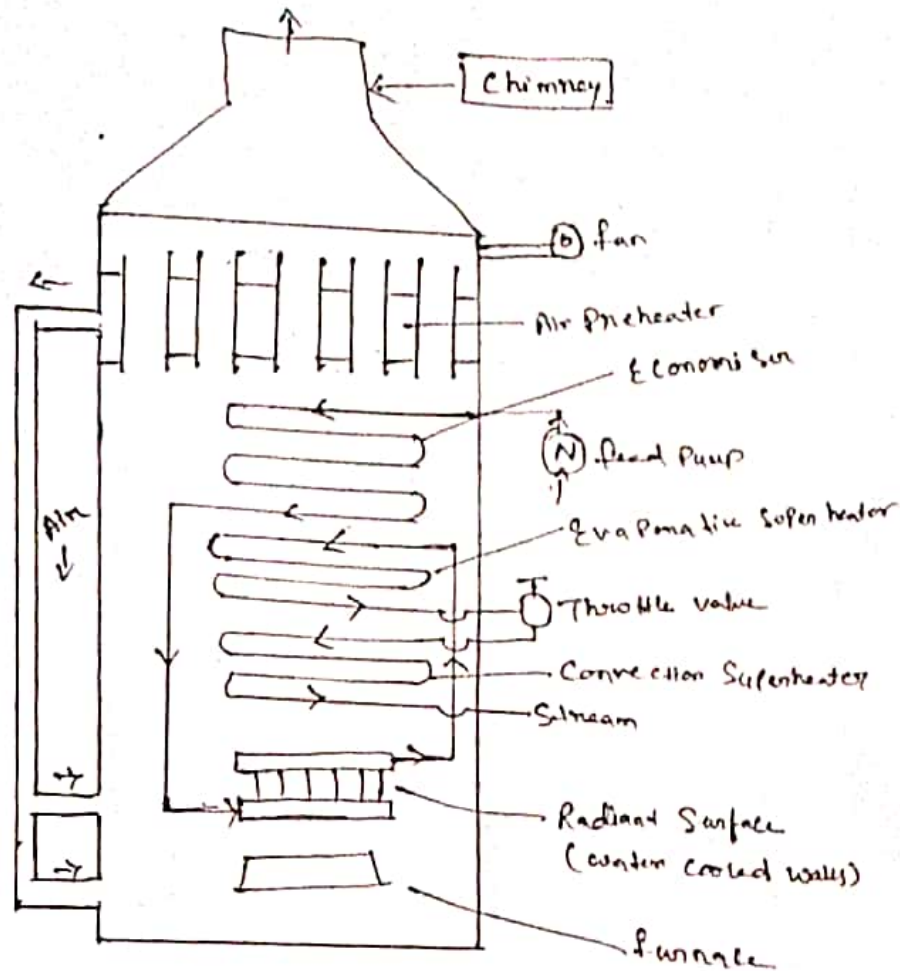 Chimney
fan
Air Preheater
Economiser
Air
feed Pump
Evaporative Superheater
Throttle valve
Convection Superheater
Stream
Radiant Surface
(water cooled walls)
furnace